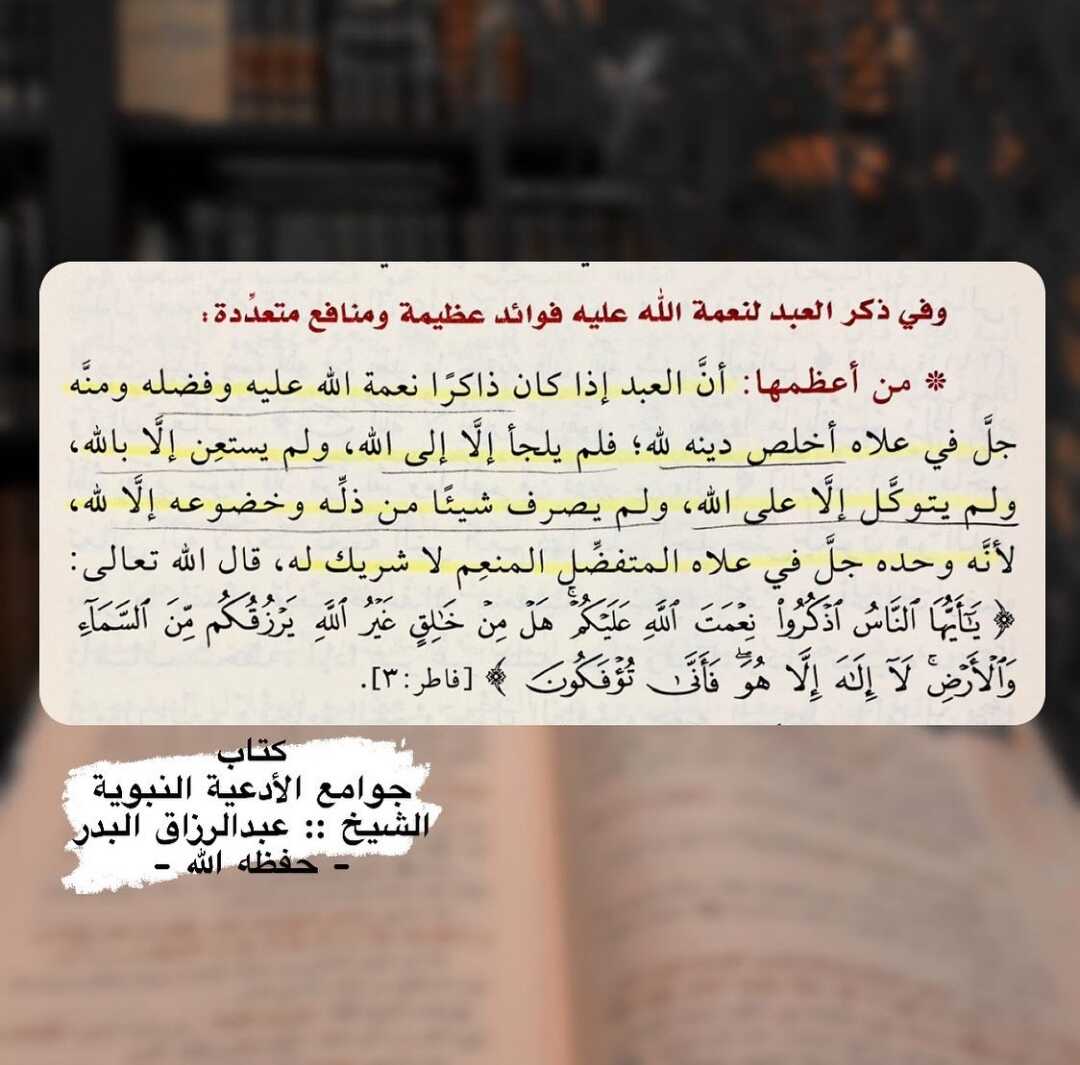 وفي ذكر العبد لنعمة الله عليه فوائد عظيمة ومنافع متعدِّدة:
❊ من أعظمها: أنَّ العبد إذا كان ذاكرًا نعمة الله عليه وفضله ومنَّه
جلَّ في علاه أخلص دينه لله؛ فلم يلجأ إلَّا إلى الله، ولم يستعِن إلَّا بالله،
ولم يتوكَّل إلَّا على الله، ولم يصرف شيئًا من ذلِّه وخضوعه إلَّا لله،
لأنَّه وحده جلَّ في علاه المتفضِّل المنعِم لا شريك له، قال الله تعالى:
﴿ يَٰٓأَيُّهَا ٱلنَّاسُ ٱذۡكُرُواْ نِعۡمَتَ ٱللَّهِ عَلَيۡكُمۡۚ هَلۡ مِنۡ خَٰلِقٍ غَيۡرُ ٱللَّهِ يَرۡزُقُكُم مِّنَ ٱلسَّمَآءِ
وَٱلۡأَرۡضِۚ لَآ إِلَٰهَ إِلَّا هُوَۖ فَأَنَّىٰ تُؤۡفَكُونَ ﴾ [فاطر:٣].
كتاب
جوامع الأدعية النبوية
الشيخ :: عبدالرزاق البدر
- حفظه الله -